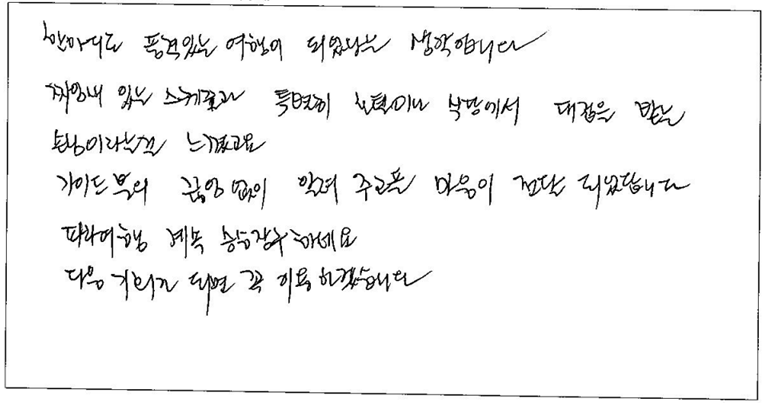 한마디로 품격있는 여행이 되었다는 생각입니다
짜임새 있는 스케줄과 특별히 호텔이나 식당에서 대접을 받는
손님이라는걸 느꼈고요
가이드 분의 끊임 없이 알려 주고픈 마음이 전달 되었답니다
파라여행 계속 승승장구하세요
다음 기회가 되면 꼭 이용 하겠습니다